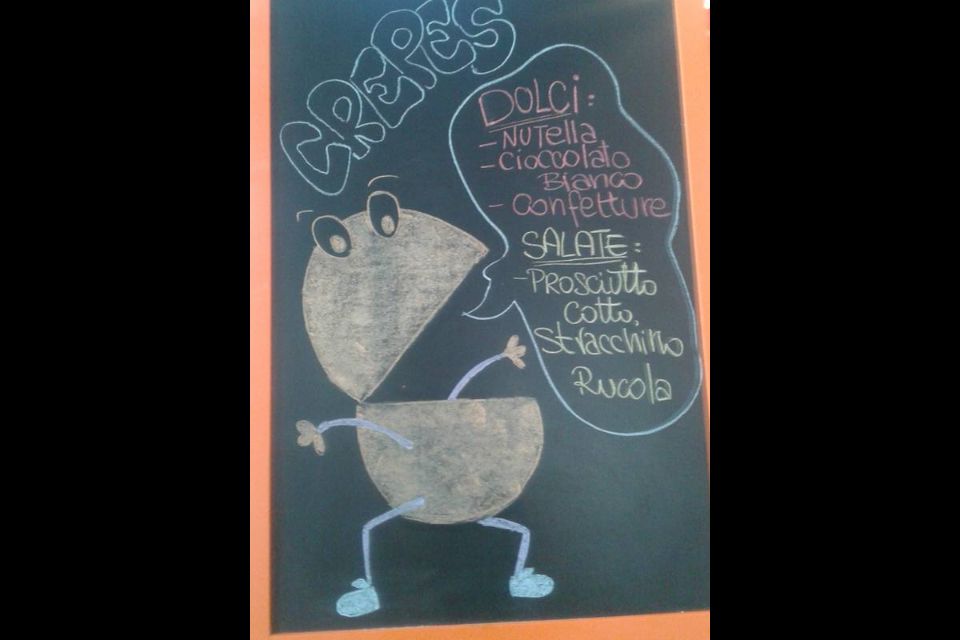 CREPES
DOLCI:
- NUTella
- Cioccolato
Bianco
- Confetture
SALATE:
- PROSCIUtto
Cotto,
Stracchino
Rucola